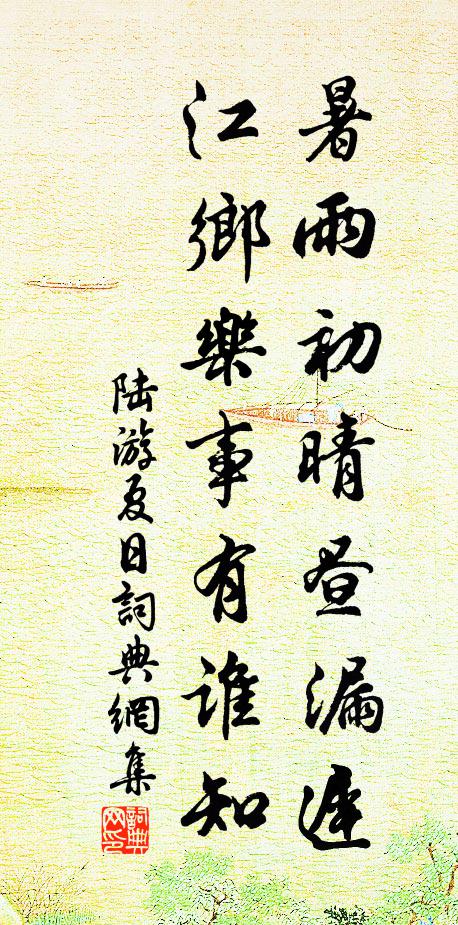 暑雨初晴昼漏遲
江鄉樂事有誰知
陆游夏日詞典網集
詞典网印